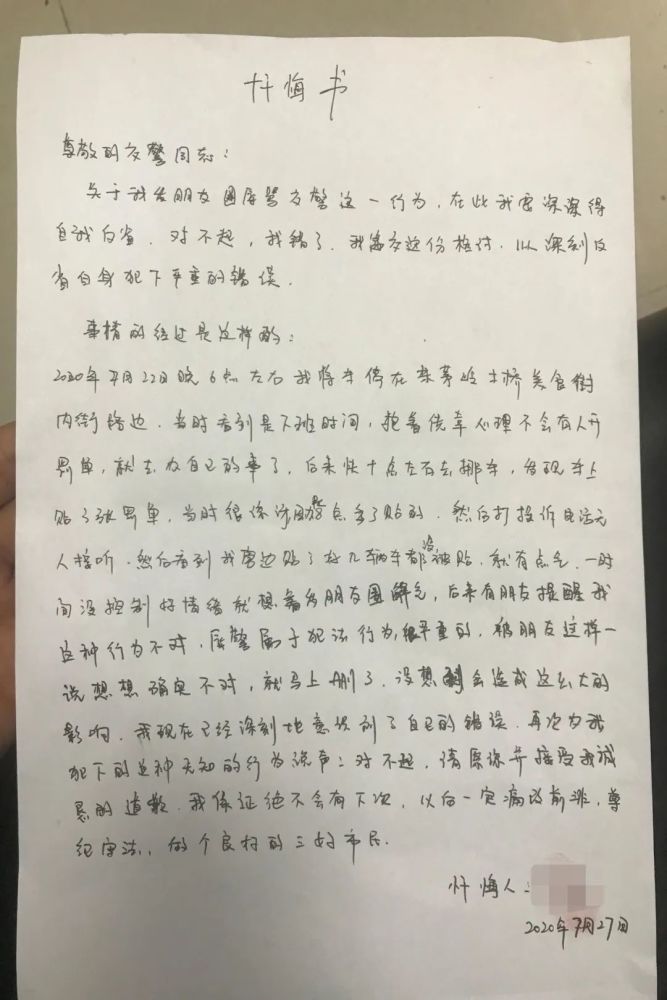 忏悔书
尊敬的交警同志：
关于我发朋友圈辱骂交警这一行为，在此我要深深得
自我自省．对不起，我错了．我递交这份检讨．以深刻反
省自身犯下严重的错误．
事情的经过是这样的：
2020年7月22日晚6点左右我将车停在 土桥美食街
内街路边．当时看到是下班时间，抱着侥幸心理不会有人开
罚单，就去办自己的事了，后来快十点左右去挪车，发现车上
贴了张罚单，当时很 点多了贴的．然后打投诉电话无
人接听．然后看到我旁边贴了好几辆车都没被贴．就有点气．一时
间没控制好情绪就想着发朋友圈解气，后来有朋友提醒我
这种行为不对．辱警属于犯法行为，很严重的，被朋友这样一
说想想确实不对，就马上删了．没想到会造成这么大的
影响．我现在已经深刻地意识到了自己的错误．再次为我
犯下的这种无知的行为说声：对不起，请原谅并接受我诚
恳的道歉．我保证绝不会有下次，以后一定痛改前非，尊
纪守法，做个良好的三好市民．
忏悔人：
2020年7月27日